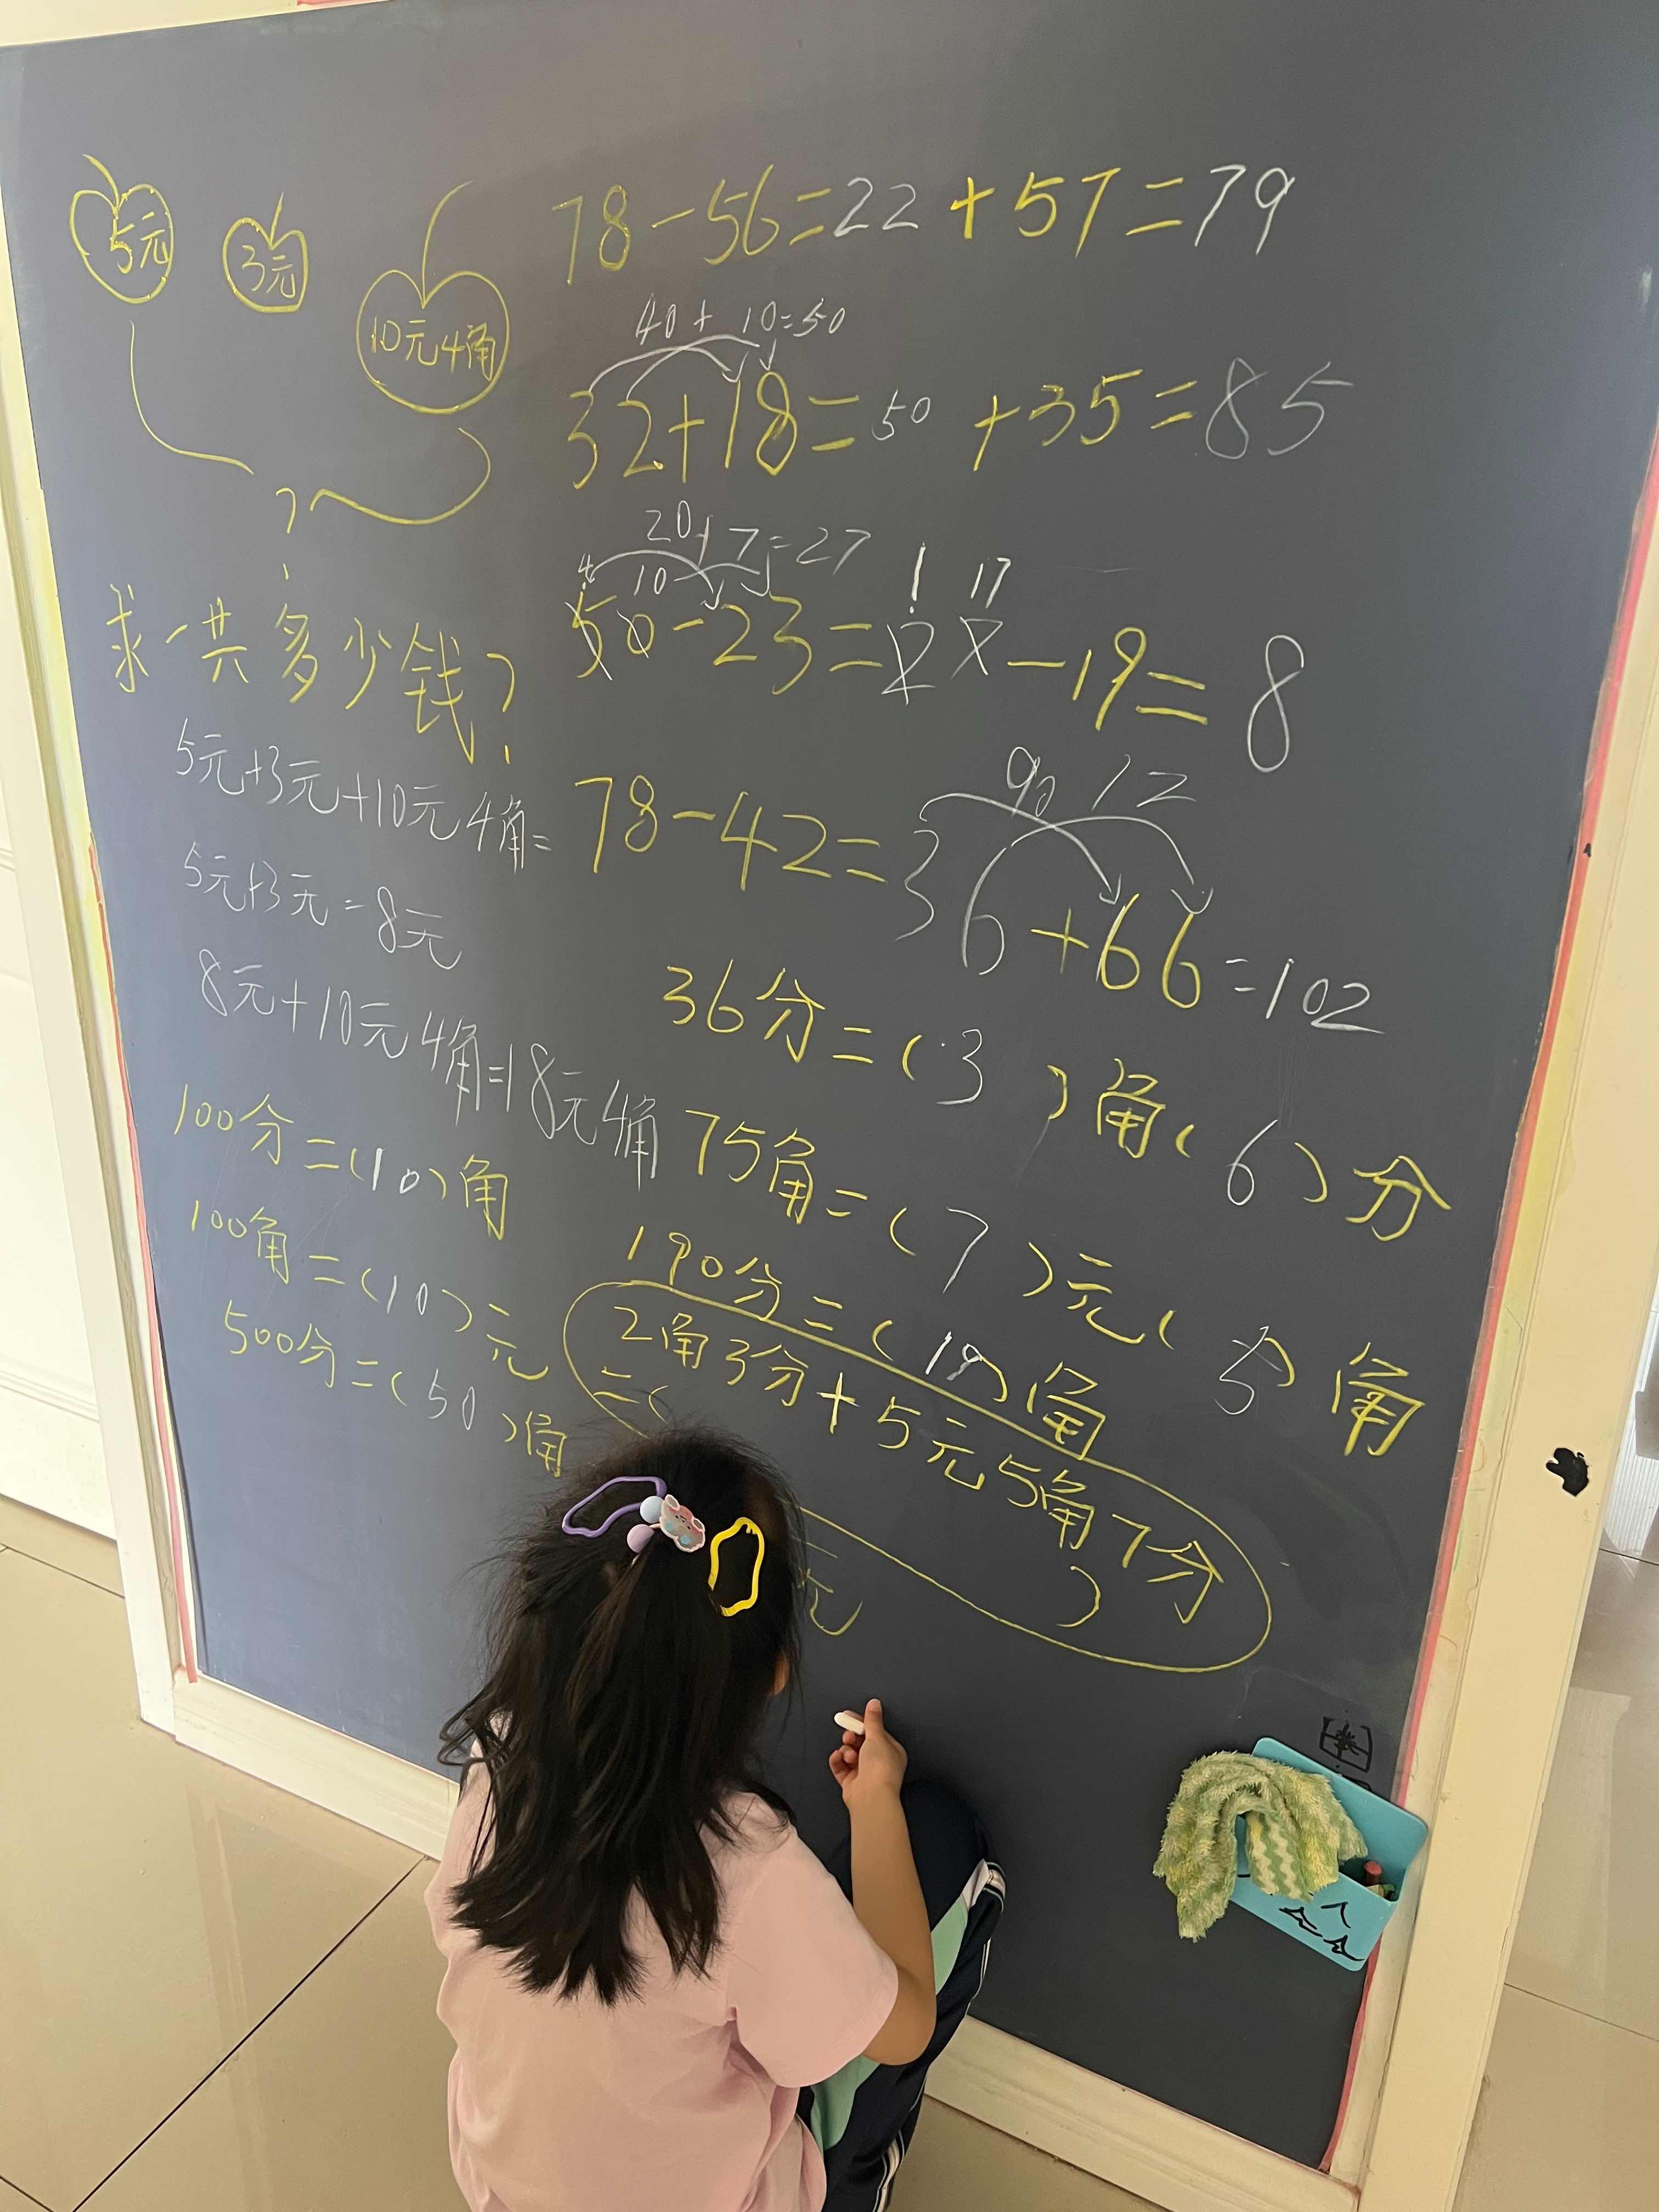 5元
3元
10元4角
?
求一共多少钱?
5元+3元+10元4角=
5元+3元=8元
8元+10元4角=18元4角
100分=(10)角
100角=(10)元
500分=(50)角
78-56=22+57=79
40+10=50
32+18=50+35=85
20+7=27
4 10
1 17
50-23=27-19=8
90 12
78-42=36+66=102
36分=(3)角(6)分
75角=(7)元(5)角
190分=(19)角
2角3分+5元5角7分
=(
)
元